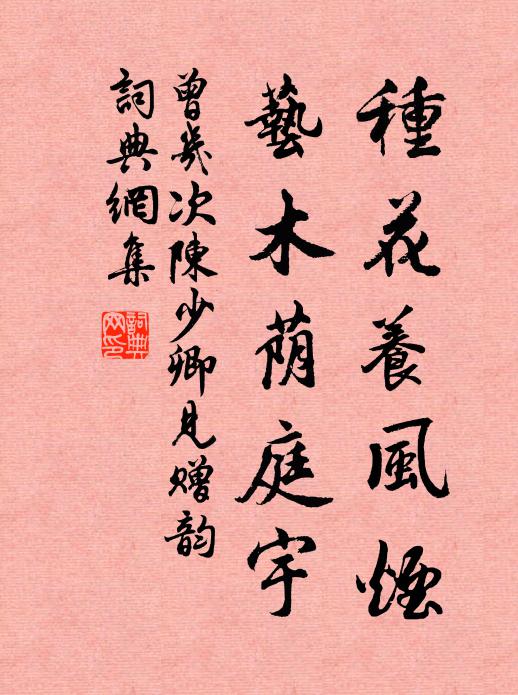 種花養風煙
藝木荫庭宇
曾幾次陳少卿見贈韵
詞典網集
詞典
网印